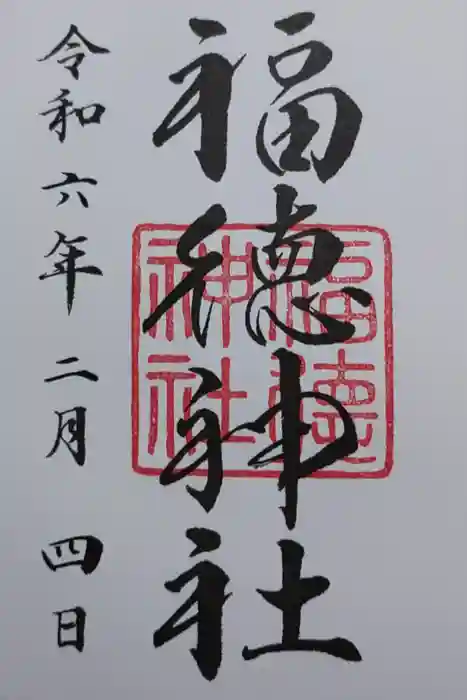 福徳神社
福徳神社
令和六年二月四日